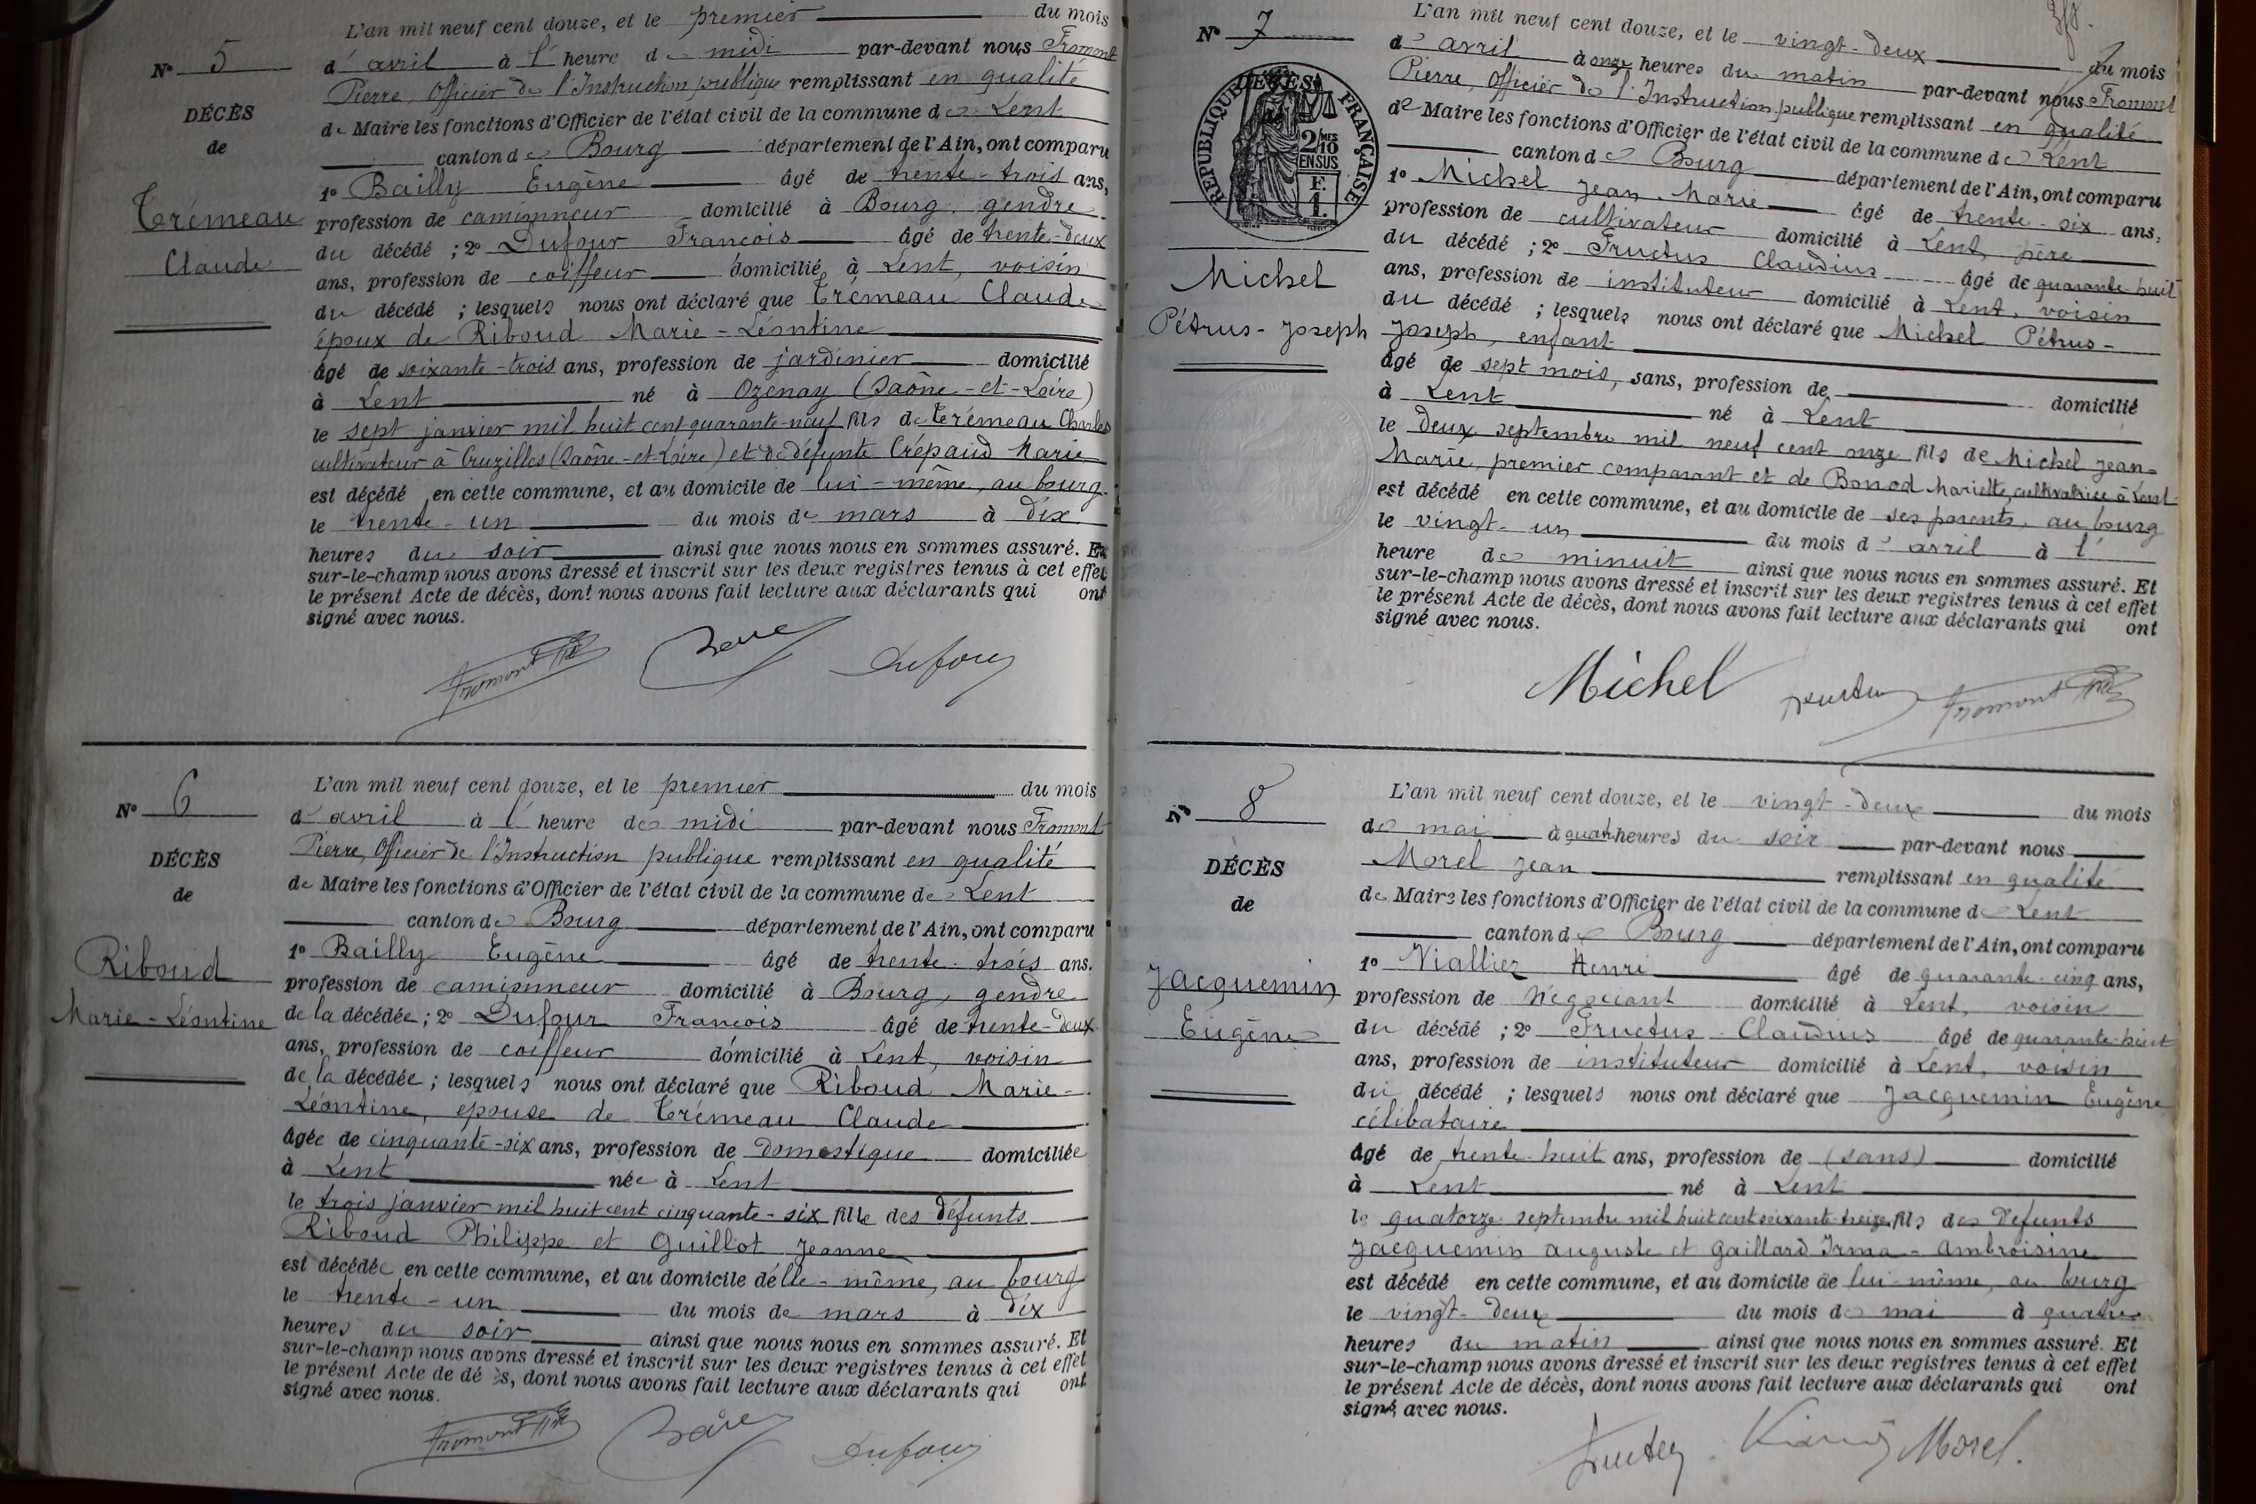 L'an mil neuf cent douze, et le premier du mois
N° 5
d'avril à l'heure de midi par-devant nous Fromont
Pierre, Officier de l'Instruction publique remplissant en qualité
DÉCÈS
de Maire les fonctions d'Officier de l'état civil de la commune de Lent
de
canton de Bourg département de l'Ain, ont comparu
1° Bailly Eugène âgé de trente-trois ans,
Trémeau
profession de camionneur domicilié à Bourg, gendre
du décédé ; 2° Dufour François âgé de trente-deux
Claude
ans, profession de coiffeur domicilié à Lent, voisin
du décédé ; lesquels nous ont déclaré que Trémeau Claude
époux de Riboud Marie-Léontine
âgé de soixante-trois ans, profession de jardinier domicilié
à Lent né à Ozenay (Saône-et-Loire)
le sept janvier mil huit cent quarante-neuf fils de Trémeau Charles
cultivateur à Cruzilles (Saône-et-Loire) et de défunte Crépaud Marie
est décédé en cette commune, et au domicile de lui-même, au bourg
le trente-un du mois de mars à dix
heures du soir ainsi que nous nous en sommes assuré. Et
sur-le-champ nous avons dressé et inscrit sur les deux registres tenus à cet effet
le présent Acte de décès, dont nous avons fait lecture aux déclarants qui ont
signé avec nous.
Fromont Dufour
L'an mil neuf cent douze, et le premier du mois
N° 6
d'avril à l'heure de midi par-devant nous Fromont
Pierre, Officier de l'Instruction publique remplissant en qualité
DÉCÈS
de Maire les fonctions d'Officier de l'état civil de la commune de Lent
de
canton de Bourg département de l'Ain, ont comparu
1° Bailly Eugène âgé de trente-trois ans.
Riboud
profession de camionneur domicilié à Bourg, gendre
Marie-Léontine
de la décédée ; 2° Dufour François âgé de trente-deux
ans, profession de coiffeur domicilié à Lent, voisin
de la décédée ; lesquels nous ont déclaré que Riboud Marie-
Léontine, épouse de Trémeau Claude
âgée de cinquante-six ans, profession de domestique domiciliée
à Lent née à Lent
le trois janvier mil huit cent cinquante-six fille des défunts
Riboud Philippe et Guillot Jeanne
est décédée en cette commune, et au domicile d'elle-même, au bourg
le trente-un du mois de mars à dix
heures du soir ainsi que nous nous en sommes assuré. Et
sur-le-champ nous avons dressé et inscrit sur les deux registres tenus à cet effet
le présent Acte de décès, dont nous avons fait lecture aux déclarants qui ont
signé avec nous.
Fromont Dufour
L'an mil neuf cent douze, et le vingt-deux du mois
N° 7
d'avril à onze heures du matin par-devant nous Fromont
Pierre, Officier de l'Instruction publique remplissant en qualité
de Maire les fonctions d'Officier de l'état civil de la commune de Lent
RÉPUBLIQUE FRANÇAISE
2/10 MES
EN SUS
F.
1.
canton de Bourg département de l'Ain, ont comparu
1° Michel Jean Marie âgé de trente-six ans,
profession de cultivateur domicilié à Lent, père
du décédé ; 2° Fructus Claudius âgé de quarante-huit
Michel
ans, profession de instituteur domicilié à Lent, voisin
du décédé ; lesquels nous ont déclaré que Michel Pétrus-
Pétrus-Joseph
Joseph, enfant
âgé de sept mois, sans, profession de domicilié
à Lent né à Lent
le deux septembre mil neuf cent onze fils de Michel Jean-
Marie, premier comparant et de Bonod Mariette, cultivatrice à Lent
est décédé en cette commune, et au domicile de ses parents, au bourg
le vingt-un du mois d'avril à l'
heure de minuit ainsi que nous nous en sommes assuré. Et
sur-le-champ nous avons dressé et inscrit sur les deux registres tenus à cet effet
le présent Acte de décès, dont nous avons fait lecture aux déclarants qui ont
signé avec nous.
Michel Fructus Fromont
L'an mil neuf cent douze, et le vingt-deux du mois
N° 8
de mai à quatre heures du soir par-devant nous
Morel Jean remplissant en qualité
DÉCÈS
de Maire les fonctions d'Officier de l'état civil de la commune de Lent
de
canton de Bourg département de l'Ain, ont comparu
1° Viallier Henri âgé de quarante-cinq ans,
Jacquemin
profession de Négociant domicilié à Lent, voisin
Eugène
du décédé ; 2° Fructus Claudius âgé de quarante-huit
ans, profession de instituteur domicilié à Lent, voisin
du décédé ; lesquels nous ont déclaré que Jacquemin Eugène
célibataire
âgé de trente-huit ans, profession de (sans) domicilié
à Lent né à Lent
le quatorze septembre mil huit cent soixante-treize fils des défunts
Jacquemin Auguste et Gaillard Irma-Ambroisine
est décédé en cette commune, et au domicile de lui-même, au bourg
le vingt-deux du mois de mai à quatre
heures du matin ainsi que nous nous en sommes assuré. Et
sur-le-champ nous avons dressé et inscrit sur les deux registres tenus à cet effet
le présent Acte de décès, dont nous avons fait lecture aux déclarants qui ont
signé avec nous.
Fructus Morel.